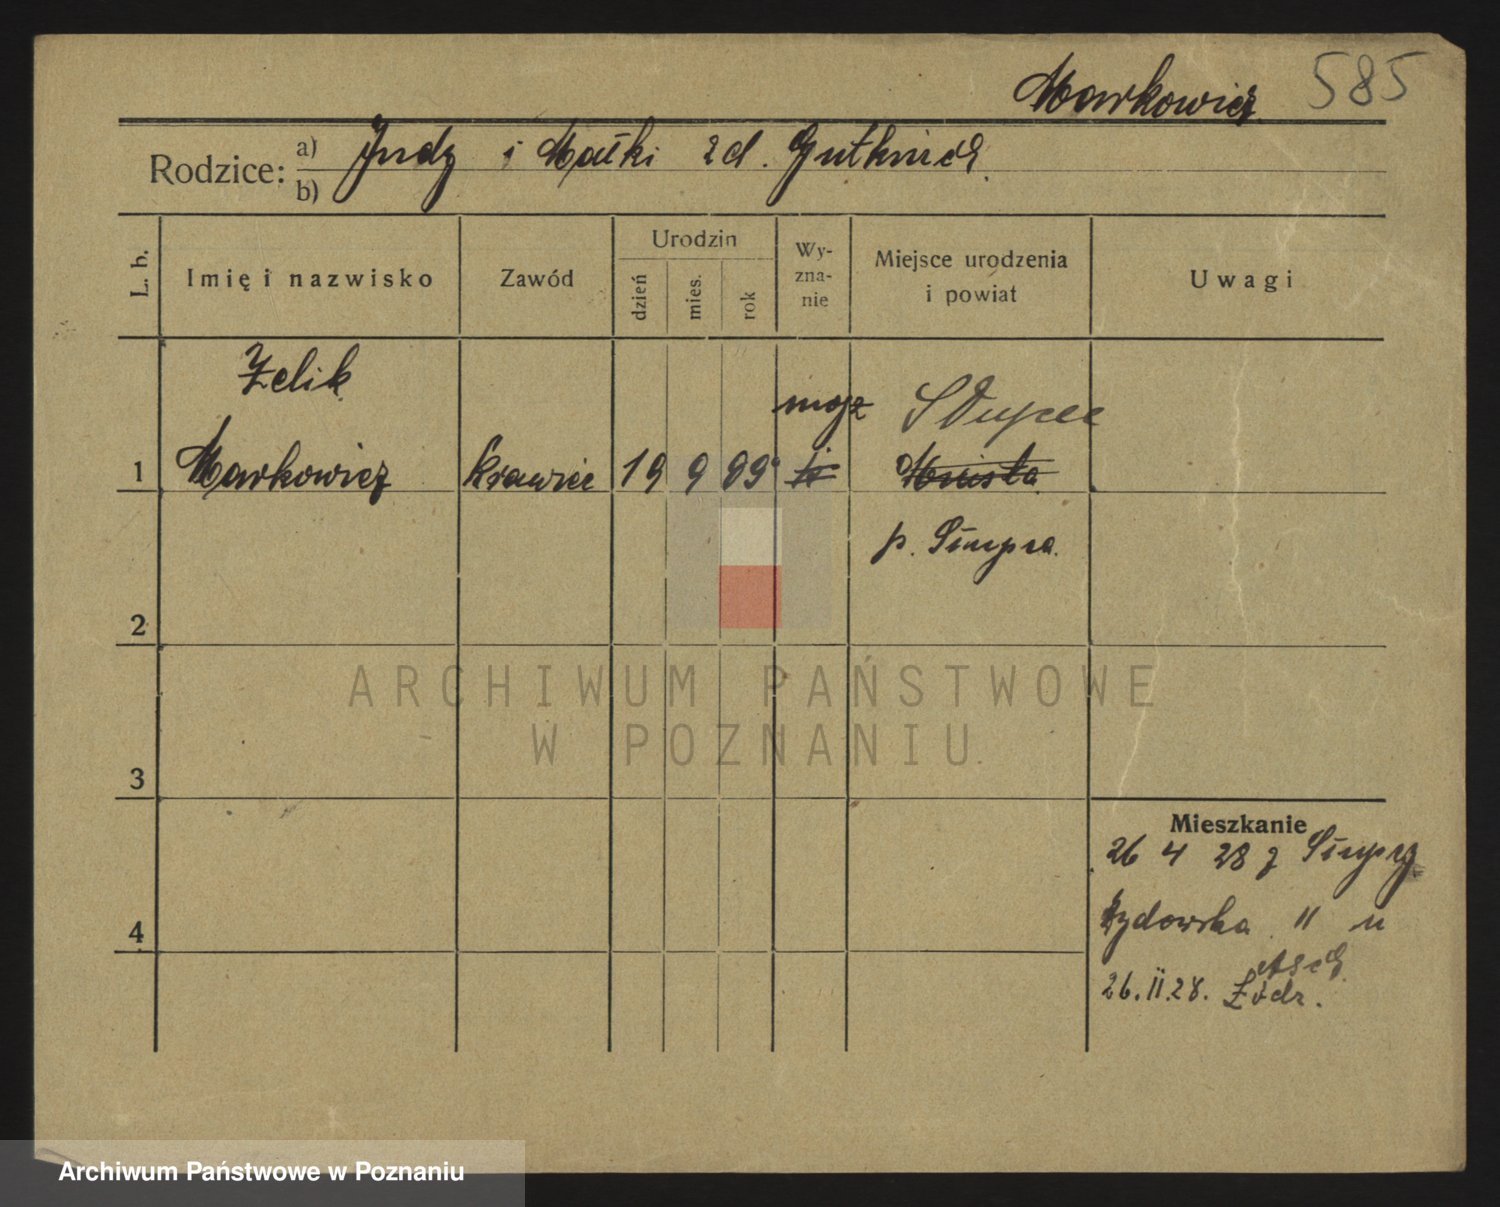 Markowicz 585
Rodzice: a) Judy i Małki zd. Gutknich.
b)
L. b. Imię i nazwisko Zawód Urodzin dzień mies. rok Wy-zna-nie Miejsce urodzenia i powiat Uwagi
Zelik mojż Słupca
1 Markowicz krawiec 19 9 99
p. Słupca.
2
ARCHIWUM PAŃSTWOWE
W POZNANIU
3
Mieszkanie
26 4 28 z Słupcy
4 Żydowska 11 u
Asch
26.II.28. Łódz.
Archiwum Państwowe w Poznaniu